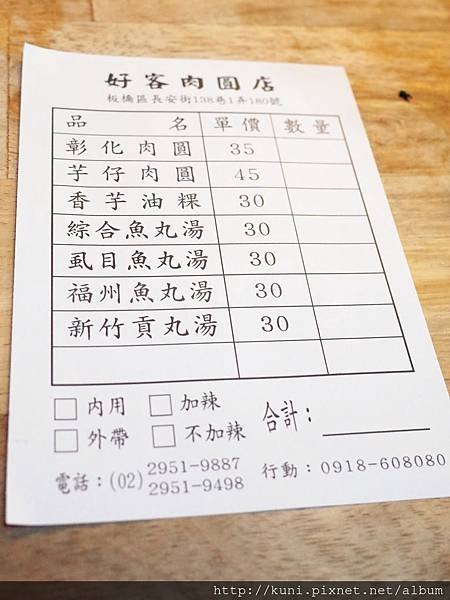 好客肉圓店
板橋區長安街138巷1弄180號
品名 單價 數量
彰化肉圓 35
芋仔肉圓 45
香芋油粿 30
綜合魚丸湯 30
虱目魚丸湯 30
福州魚丸湯 30
新竹貢丸湯 30
□ 內用 □ 加辣 合計：
□ 外帶 □ 不加辣
電話：(02) 2951-9887 行動：0918-608080
2951-9498
http://kuni.pixnet.net/album